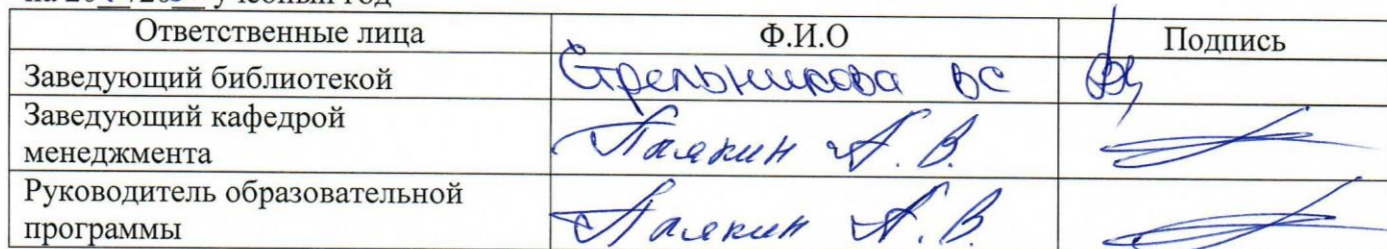 учебный год
Ответственные лица Ф.И.О Подпись
Заведующий библиотекой Стрельникова ВС
Заведующий кафедрой
менеджмента А. В.
Руководитель образовательной
программы А. В.